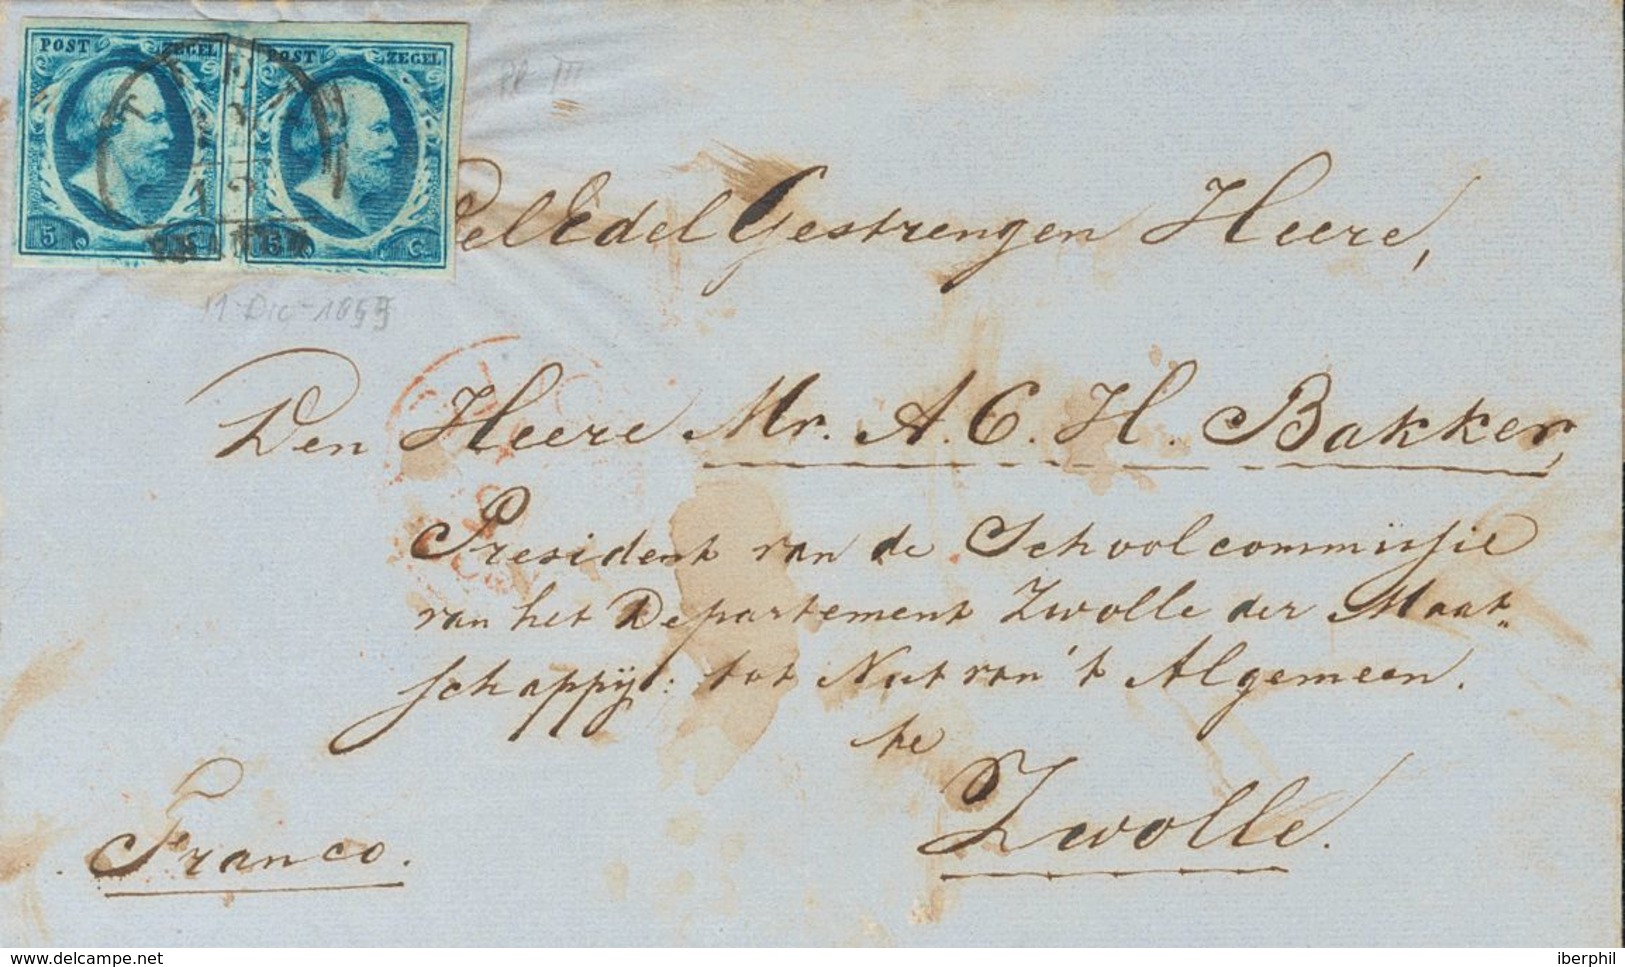 POST ZEGEL POST ZEGEL
5 5 C.
FRANCO
11-Dic-1855
WelEdelGestrengen Heere,
Den Heere Mr. A. C. H. Bakker,
President van de Schoolcommissie
van het Departement Zwolle der Maat„
schappij: tot Nut van 't Algemeen.
te
Zwolle.
Franco.
www.delcampe.net
iberphil